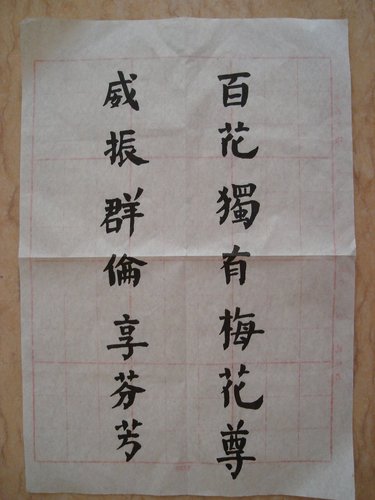 百花獨有梅花尊
威振群倫享芬芳